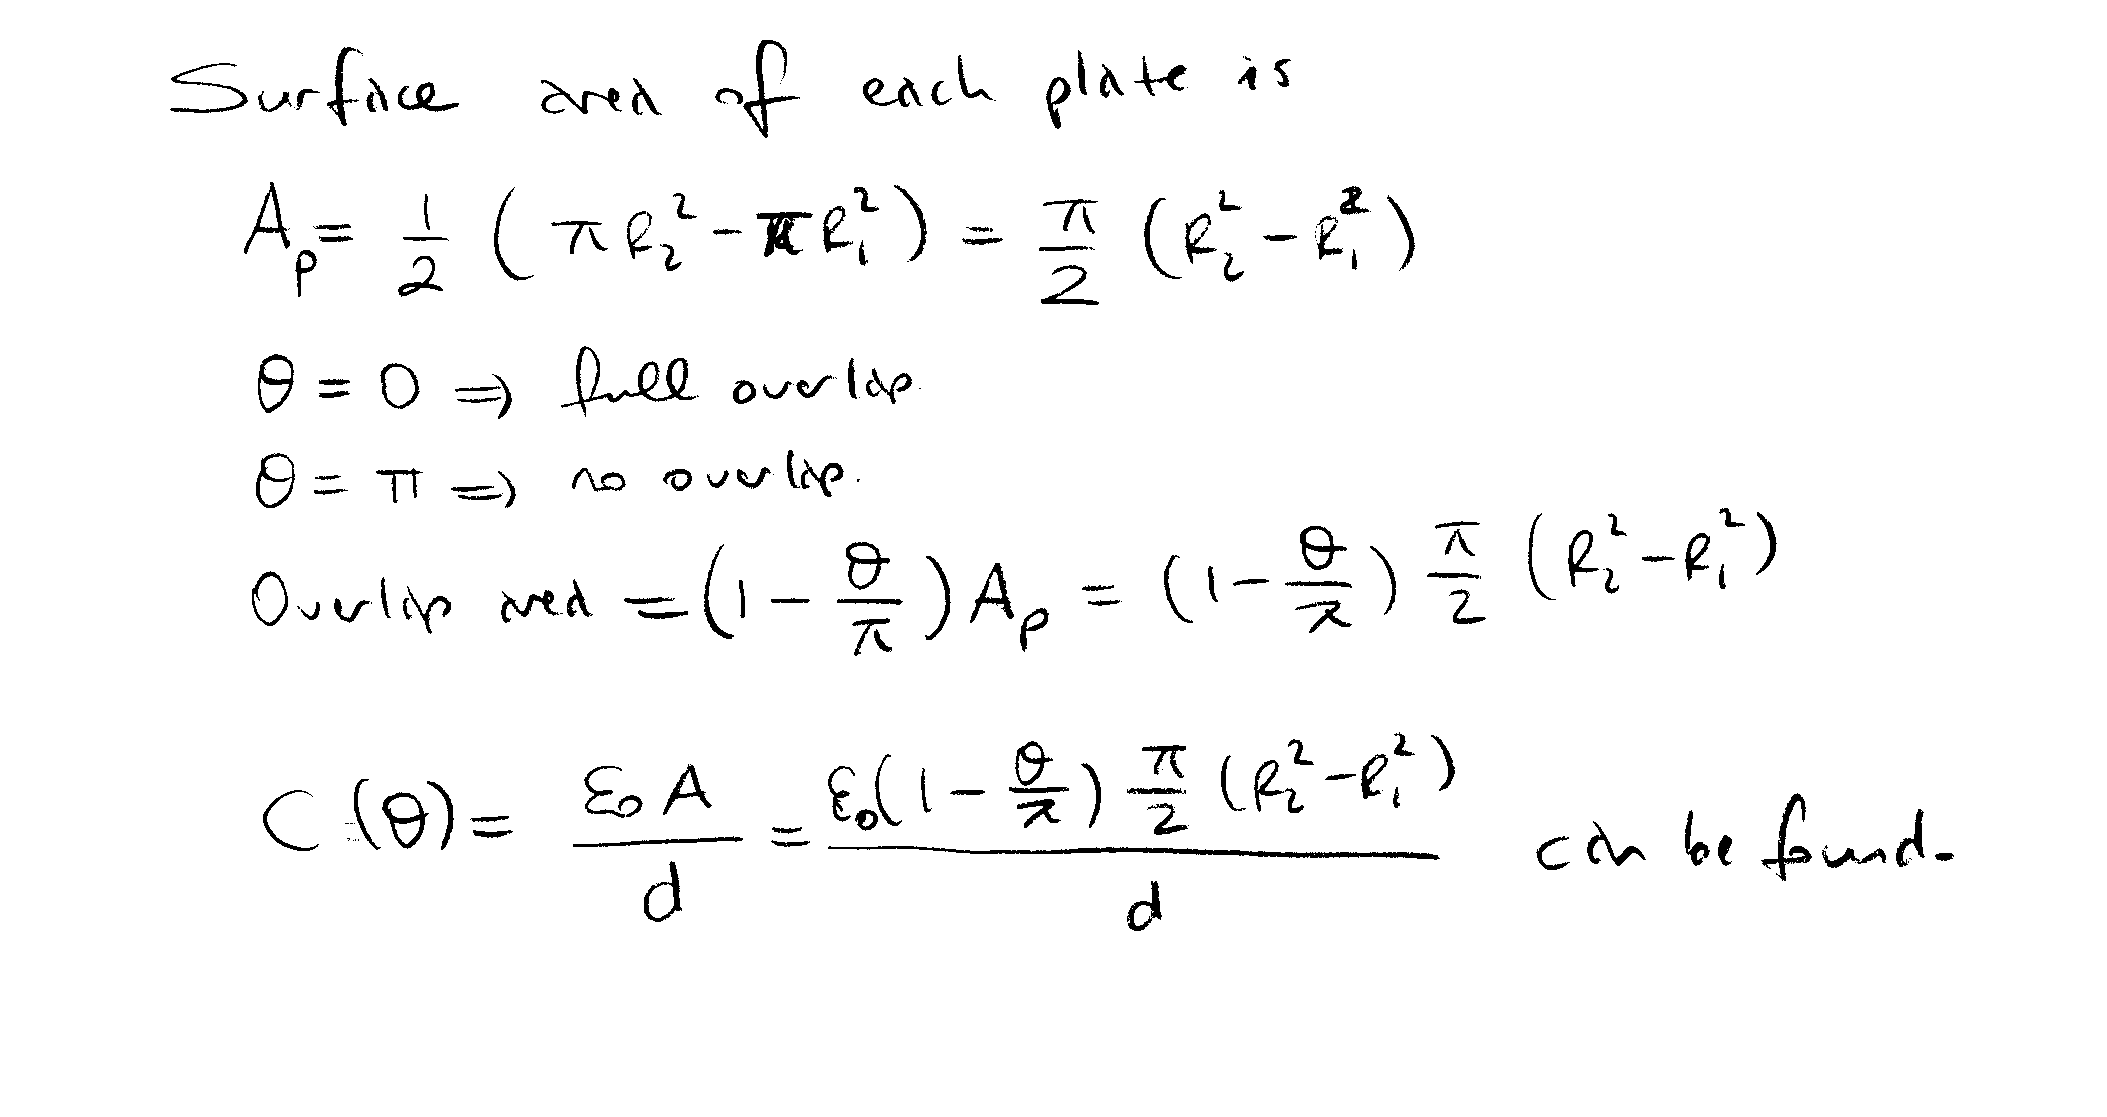 Surface area of each plate is
A_p = 1/2 (πR₂² - πR₁²) = π/2 (R₂² - R₁²)
θ = 0 ⇒ full overlap.
θ = π ⇒ no overlap.
Overlap area = (1 - θ/π) A_p = (1 - θ/π) π/2 (R₂² - R₁²)
C(θ) = ε₀A/d = ε₀(1 - θ/π) π/2 (R₂² - R₁²)/d can be found.